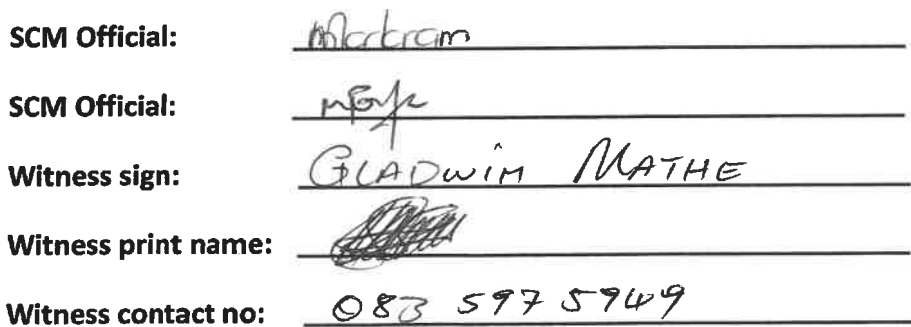 SCM Official: Markram
SCM Official:
Witness sign: GLADWIN MATHE
Witness print name:
Witness contact no: 083 597 5949